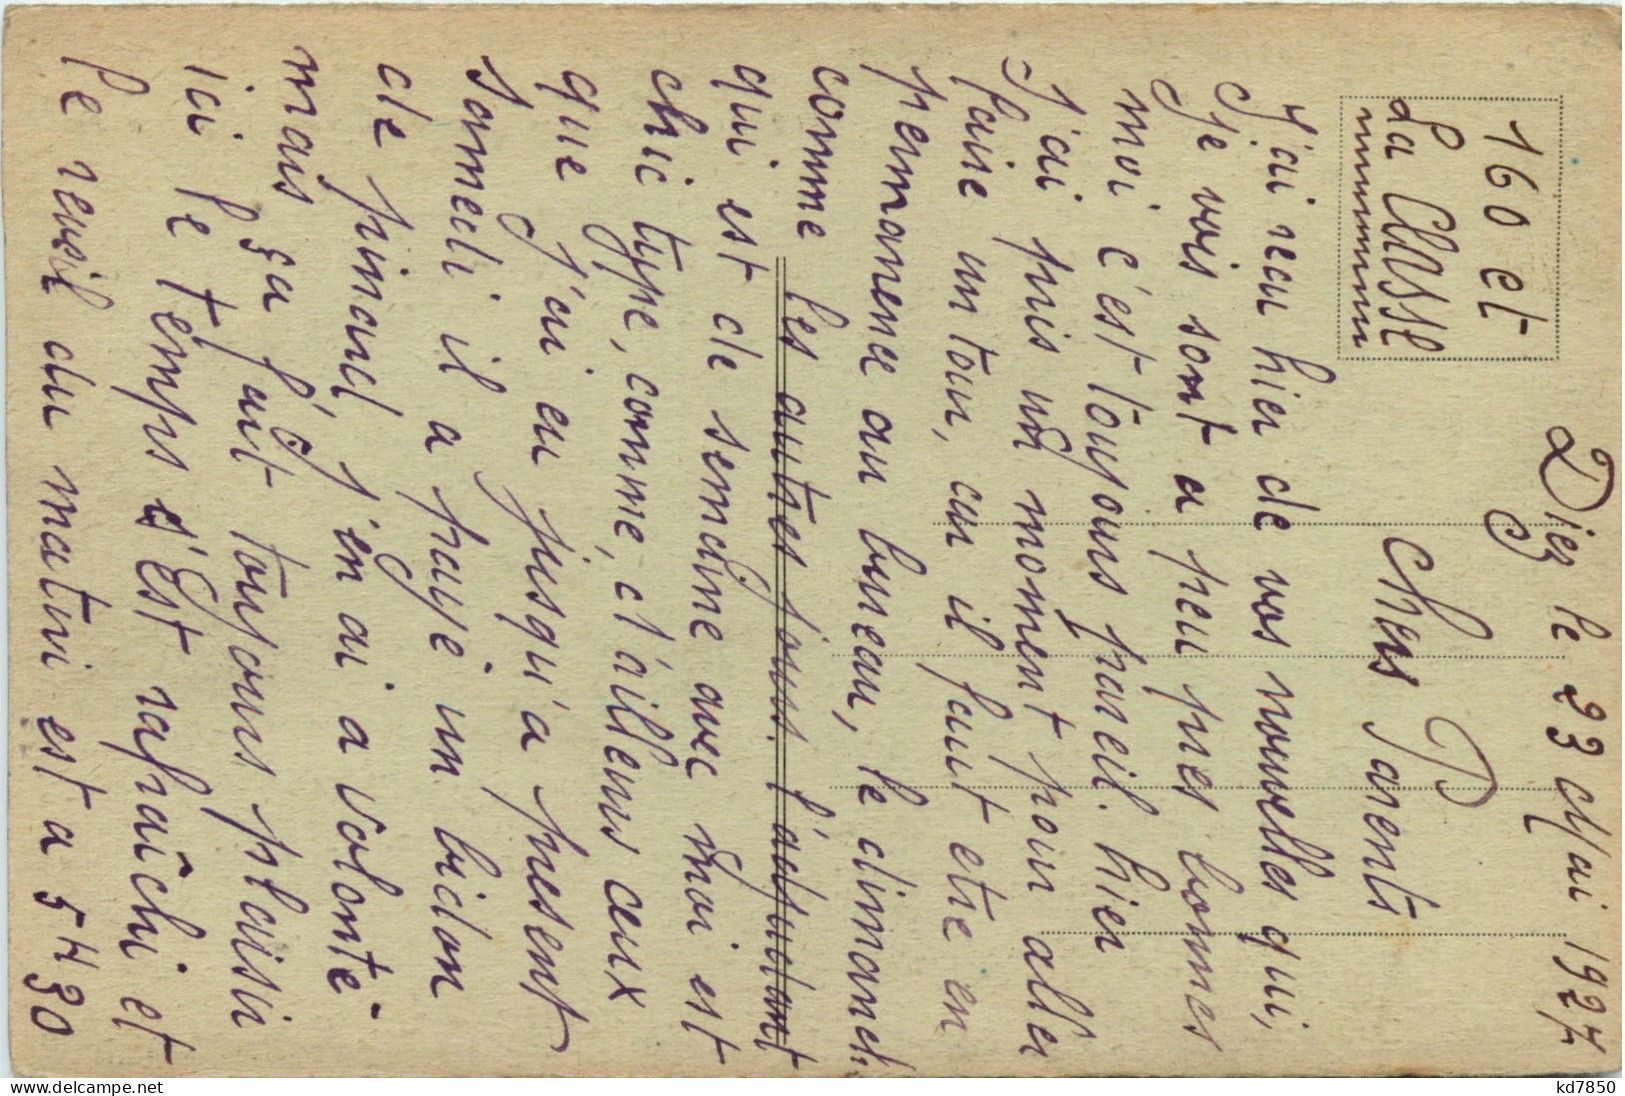 160 et
La Classe
Diez le 23 Mai 1927
Chers Parents
J'ai recu hier de vos nouvelles qui,
je vois sont a peu pres bonnes
moi c'est toujours pareil. hier
J'ai pris un moment pour aller
faire un tour, car il faut etre en
permanence au bureau, le dimanch
comme les autres jours. l'adjudant
qui est de semaine avec moi est
chic type, comme, d'ailleurs ceux
que j'ai eu jusqu'a present
Samedi il a payé un bidon
de pinard, j'en ai a volonté
mais ça fait toujours plaisir
ici le temps s'est rafraîchi et
le reveil du matin est a 5 H 30
www.delcampe.net
kd7850